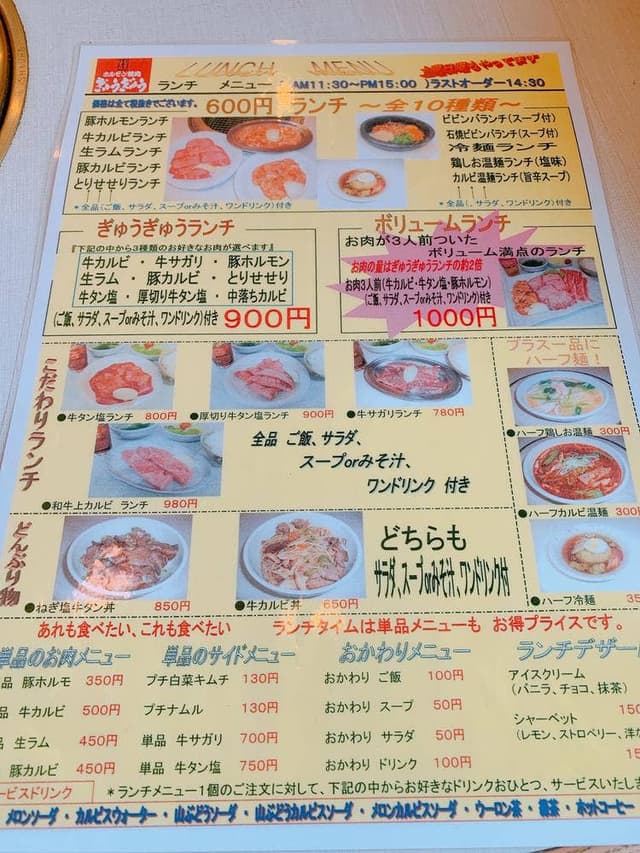 ホルモン焼肉
ぎゅうぎゅう
LUNCH MENU
ランチ メニュー (AM11:30～PM15:00 )ラストオーダー14:30
価格は全て税抜きでございます。
600円 ランチ ～全10種類～
豚ホルモンランチ
牛カルビランチ
生ラムランチ
豚カルビランチ
とりせせりランチ
*全品(ご飯、サラダ、スープorみそ汁、ワンドリンク)付き
ビビンバランチ(スープ付)
石焼ビビンバランチ(スープ付)
冷麺ランチ
鶏しお温麺ランチ(塩味)
カルビ温麺ランチ(旨辛スープ)
*全品(サラダ、ワンドリンク)付き
ぎゅうぎゅうランチ
『下記の中から3種類のお好きなお肉が選べます』
牛カルビ ・ 牛サガリ ・ 豚ホルモン
生ラム ・ 豚カルビ ・ とりせせり
牛タン塩 ・ 厚切り牛タン塩 ・ 中落ちカルビ
(ご飯、サラダ、スープorみそ汁、ワンドリンク)付き 900円
ボリュームランチ
お肉が3人前ついた
ボリューム満点のランチ
お肉の量はぎゅうぎゅうランチの約2倍
お肉3人前(牛カルビ・牛タン塩・豚ホルモン)
(ご飯、サラダ、スープorみそ汁、ワンドリンク)付き
1000円
こだわりランチ
●牛タン塩ランチ 800円
●厚切り牛タン塩ランチ 900円
●牛サガリランチ 780円
●和牛上カルビ ランチ 980円
全品 ご飯、サラダ、
スープorみそ汁、
ワンドリンク 付き
プラス一品に
ハーフ麺！
●ハーフ鶏しお温麺 300円
●ハーフカルビ温麺 300
●ハーフ冷麺 35
どんぶり物
●ねぎ塩牛タン丼 850円
●牛カルビ丼 650円
どちらも
サラダ、スープorみそ汁、ワンドリンク付
あれも食べたい、これも食べたい ランチタイムは単品メニューも お得プライスです。
単品のお肉メニュー
品 豚ホルモ 350円
品 牛カルビ 500円
品 生ラム 450円
豚カルビ 450円
単品のサイドメニュー
プチ白菜キムチ 130円
プチナムル 130円
単品 牛サガリ 700円
単品 牛タン塩 750円
おかわりメニュー
おかわり ご飯 100円
おかわり スープ 50円
おかわり サラダ 50円
おかわり ドリンク 100円
ランチデザー
アイスクリーム
(バニラ、チョコ、抹茶)
150
シャーベット
(レモン、ストロベリー、洋な
15
ービスドリンク
*ランチメニュー1個のご注文に対して、下記の中からお好きなドリンクおひとつ、サービスいたしま
メロンソーダ ・ カルピスウォーター ・ 山ぶどうソーダ ・ 山ぶどうカルピスソーダ ・ メロンカルピスソーダ ・ ウーロン茶 ・ 緑茶 ・ ホットコーヒー